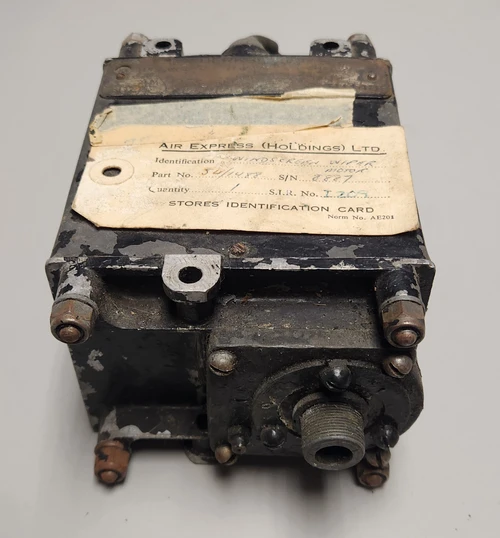 AIR EXPRESS (HOLDINGS) LTD
Identification WINDSCREEN WIPER
MOTOR
Part No. S/N 2887
Quantity 1 S.I.R. No.
STORES IDENTIFICATION CARD
Norm No. AE201